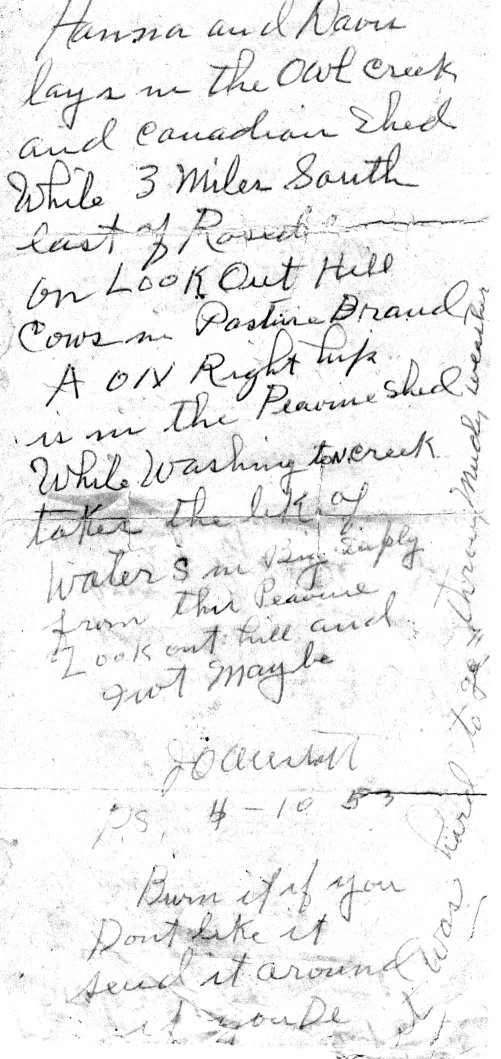 Hanna and Davis
lays in the Owl Creek
and Canadian Shed
While 3 Miles South
East of
on LOOK Out Hill
Cows in Pasture Brand
A O IX Right hip
is in the Peavine shed
While Washington creek
takes the of
Waters in Big Supply
from this Peavine
Look out hill and
Maybe
P.S. 4-10 53
Burn it if you
Dont like it
send it around
if you De
it was hard to go through Muddy weather